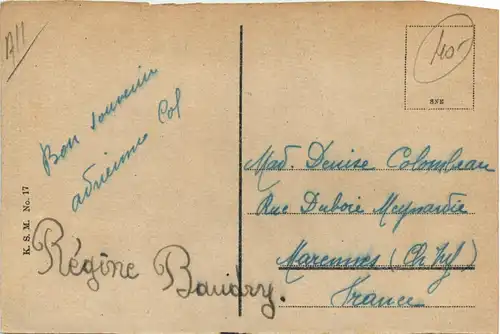 All
Bon souvenir
adrienne Col
K. S. M. No. 17
Régine Baudry.
40-
SNB
Mad. Denise Colombeau
Rue Dubois Meynardie
Marennes (Ch Inf)
France